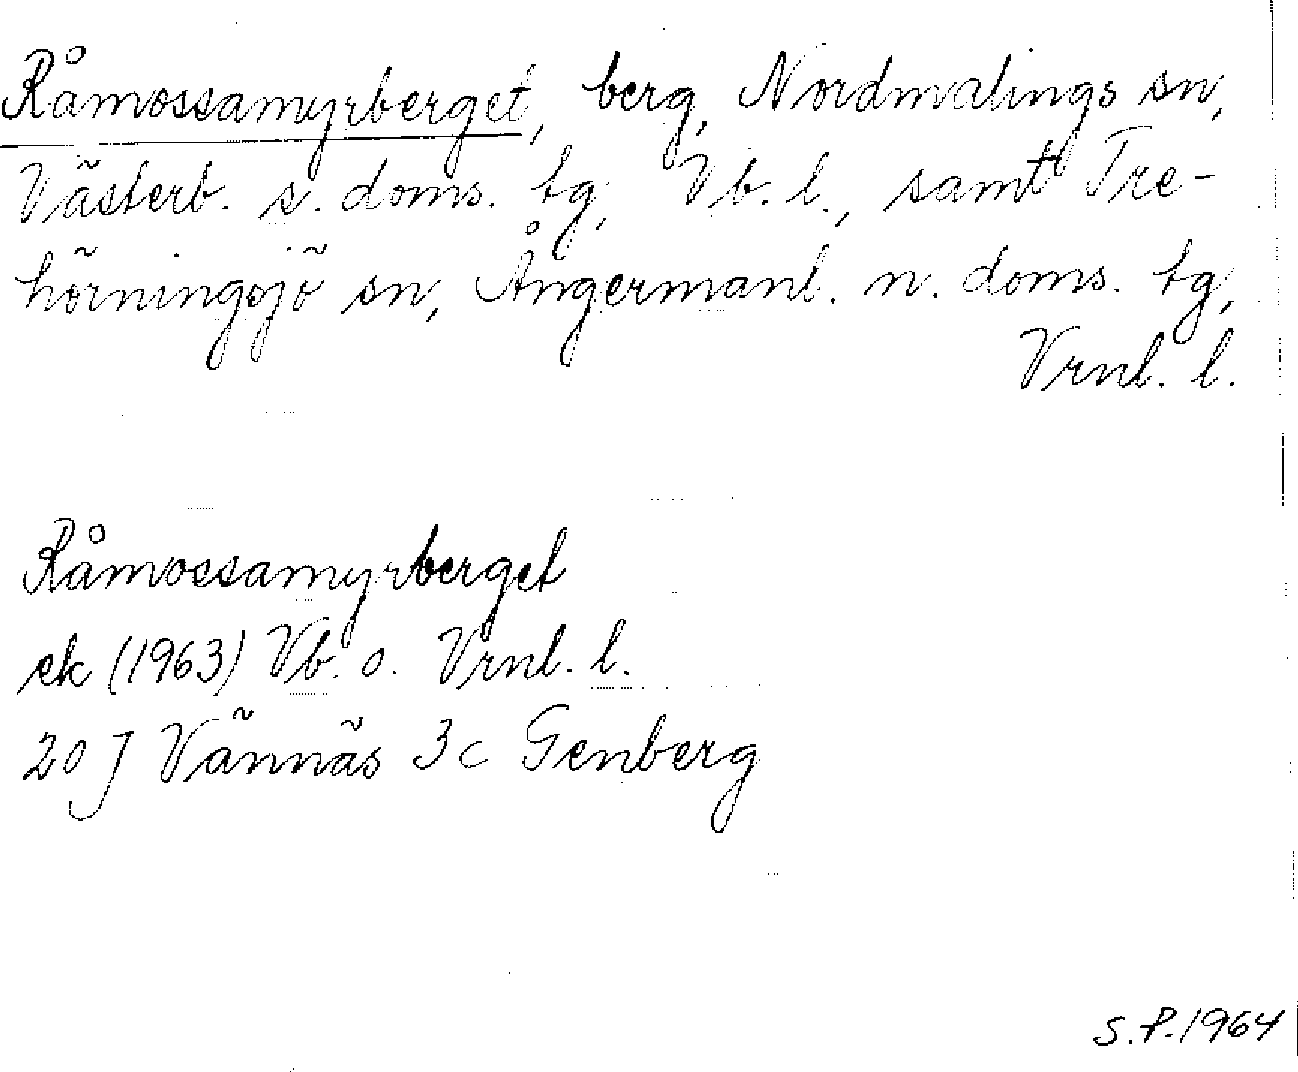 Råmossamyrberget, berg, Nordmalings sn,
Västerb. s. doms. tg, Vb. l., samt Tre-
hörningsjö sn, Ångermanl. n. doms. tg,
Vrnl. l.
Råmossamyrberget
ek (1963) Vb. o. Vrnl. l.
20 J Vännäs 3c Genberg
S.P. 1964